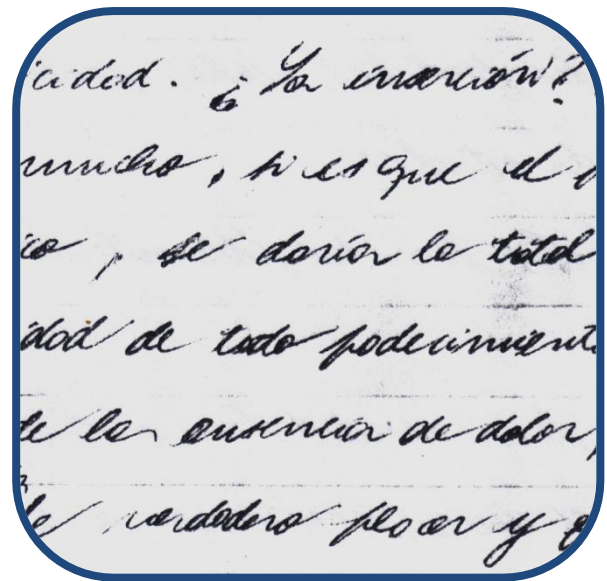 icidad. ¿La inserción?
mucho, si es que el
ico, se daría la total
idad de todo padecimient
de la ausencia de dolor,
de verdadero placer y